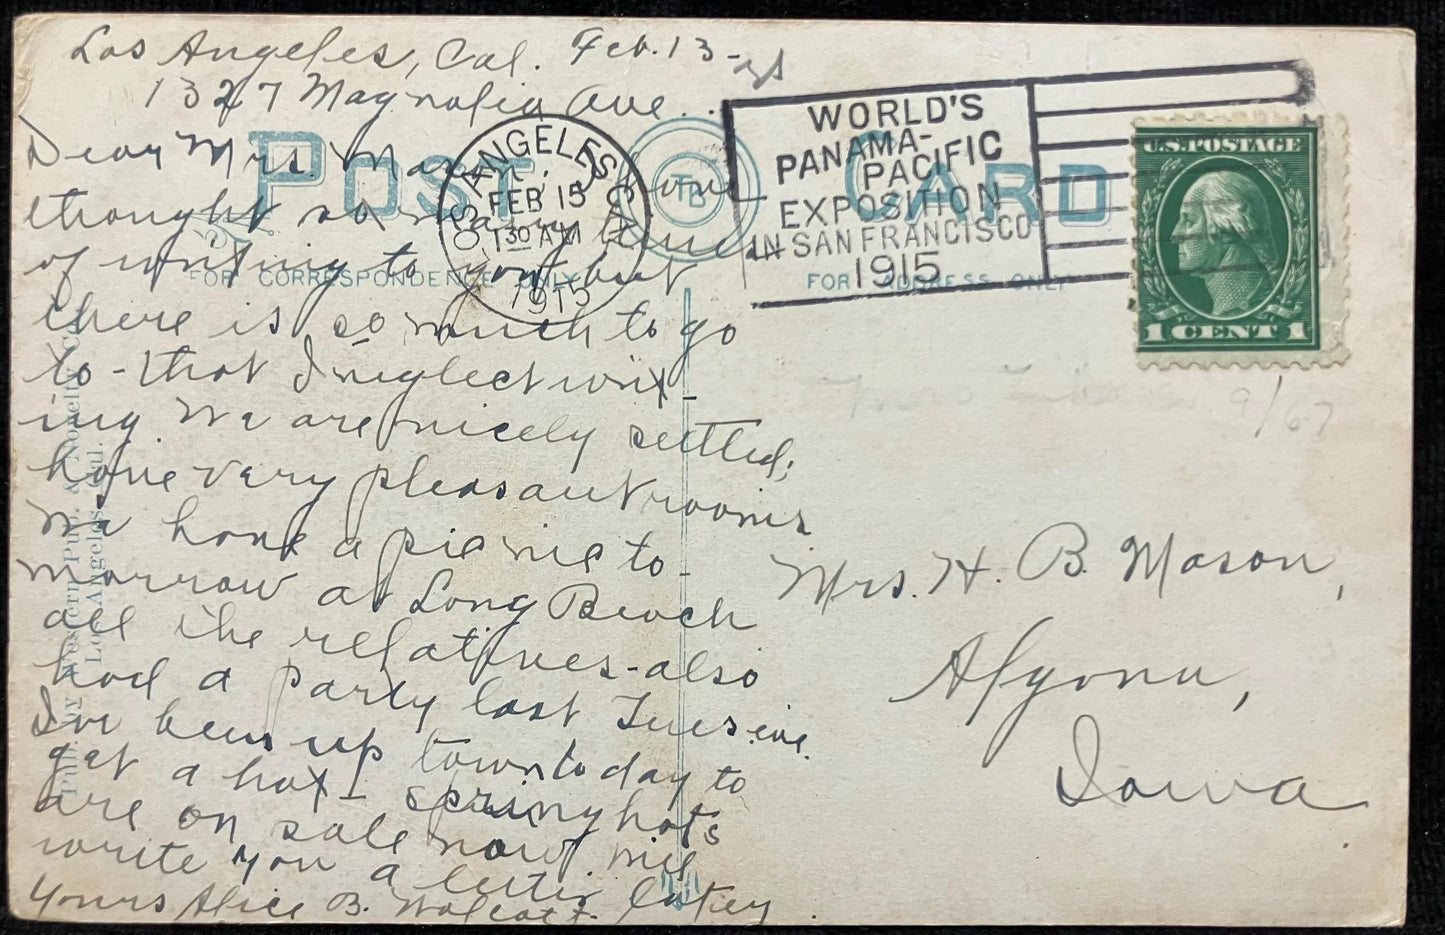 Los Angeles, Cal. Feb. 13-
1327 Magnolia Ave.
Dear Mrs. Mason, I have
thought so many times
of writing to you but
there is so much to go
to - that I neglect writ-
ing. We are nicely settled;
have very pleasant rooms
We have a picnic to-
morrow at Long Beach
all the relatives - also
had a party last Tues. eve.
I've been up town today to
get a hat - spring hats
are on sale now will
write you a letter later
Yours Alice B. Wolcott.
POST CARD
TB
FOR CORRESPONDENCE ONLY
FOR ADDRESS ONLY
LOS ANGELES
FEB 15
1 30 AM
1915
WORLD'S
PANAMA-
PACIFIC
EXPOSITION
IN SAN FRANCISCO
1915
U.S. POSTAGE
1 CENT 1
9/67
Mrs. H. B. Mason,
Algona,
Iowa
Pub. by Western Pub. & Novelty Co.
Los Angeles, Cal.